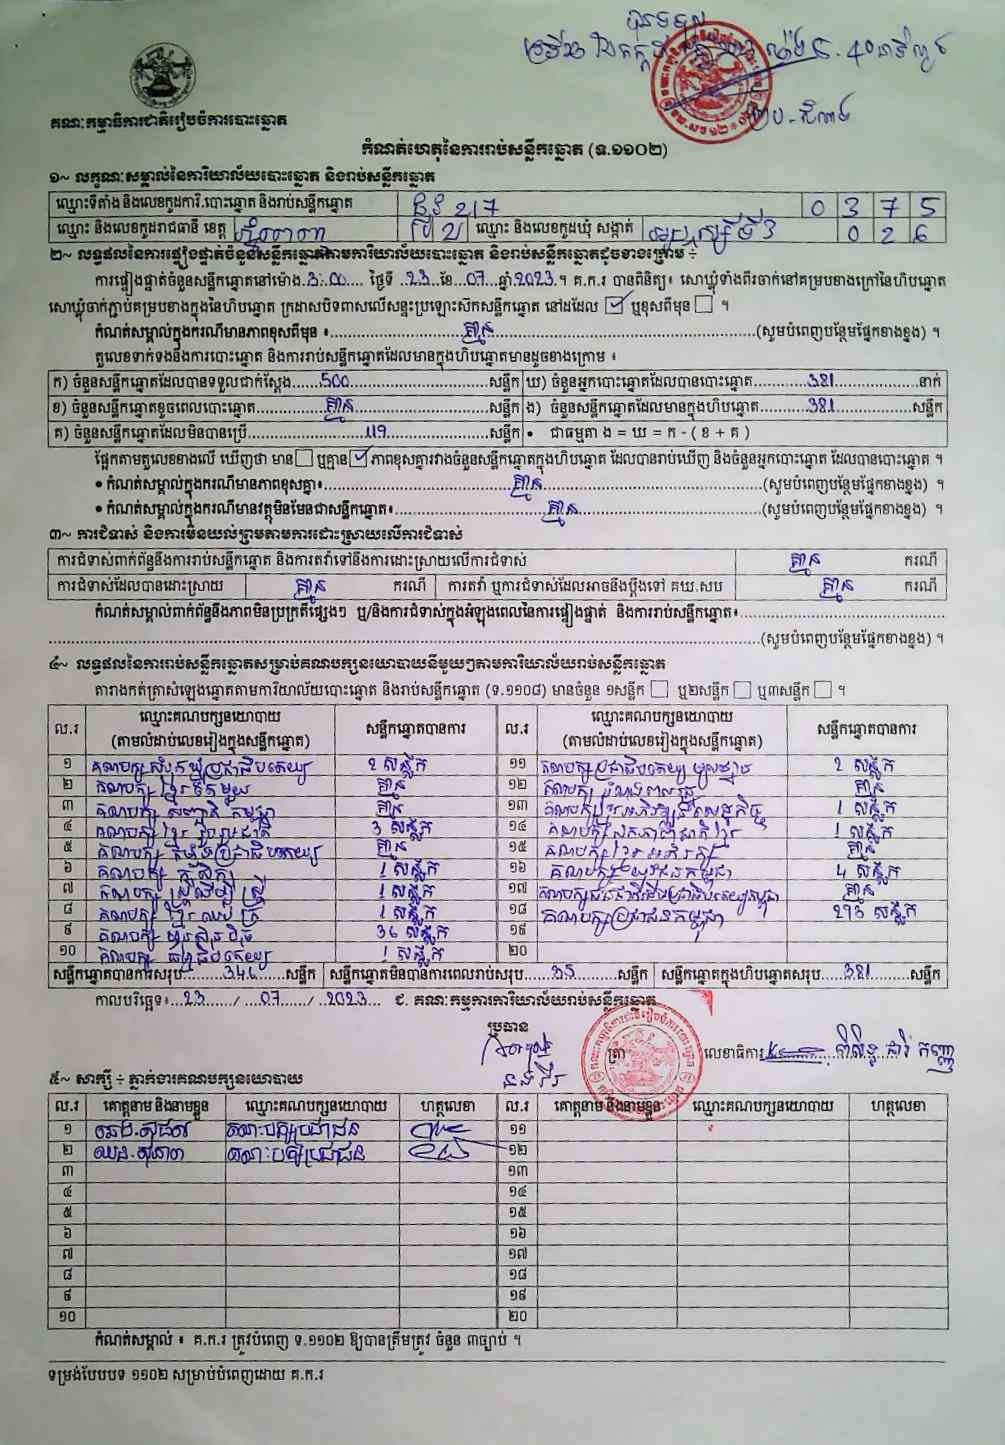 គណៈកម្មាធិការជាតិរៀបចំការបោះឆ្នោត
កំណត់ហេតុនៃការរាប់សន្លឹកឆ្នោត (ទ.១១០២)
១~ លក្ខណៈសម្គាល់នៃការិយាល័យបោះឆ្នោត និងរាប់សន្លឹកឆ្នោត
ឈ្មោះទីតាំង និងលេខកូដការិ.បោះឆ្នោត និងរាប់សន្លឹកឆ្នោត 0 3 7 5
ឈ្មោះ និងលេខកូដរាជធានី ខេត្ត ឈ្មោះ និងលេខកូដឃុំ សង្កាត់ 0 2 6
២~ លទ្ធផលនៃការផ្ទៀងផ្ទាត់ចំនួនសន្លឹកឆ្នោតតាមការិយាល័យបោះឆ្នោត និងរាប់សន្លឹកឆ្នោតដូចខាងក្រោម ÷
ការផ្ទៀងផ្ទាត់ចំនួនសន្លឹកឆ្នោតនៅម៉ោង 3:00 ថ្ងៃទី 23 ខែ 07 ឆ្នាំ 2023 ។ គ.ក.រ បានពិនិត្យ៖ សោឃ្មុំទាំងពីរចាក់នៅគម្របខាងក្រៅនៃហិបឆ្នោត
សោឃ្មុំចាក់ភ្ជាប់គម្របខាងក្នុងនៃហិបឆ្នោត ក្រដាសបិទពាសលើសន្ទះប្រឡោះស៊កសន្លឹកឆ្នោត នៅដដែល ☑ ឬខុសពីមុន ☐ ។
កំណត់សម្គាល់ក្នុងករណីមានភាពខុសពីមុន ៖ គ្មាន (សូមបំពេញបន្ថែមផ្នែកខាងខ្នង) ។
តួលេខទាក់ទងនឹងការបោះឆ្នោត និងការរាប់សន្លឹកឆ្នោតដែលមានក្នុងហិបឆ្នោតមានដូចខាងក្រោម ៖
ក) ចំនួនសន្លឹកឆ្នោតដែលបានទទួលជាក់ស្តែង 500 សន្លឹក ឃ) ចំនួនអ្នកបោះឆ្នោតដែលបានបោះឆ្នោត 381 នាក់
ខ) ចំនួនសន្លឹកឆ្នោតខូចពេលបោះឆ្នោត គ្មាន សន្លឹក ង) ចំនួនសន្លឹកឆ្នោតដែលមានក្នុងហិបឆ្នោត 381 សន្លឹក
គ) ចំនួនសន្លឹកឆ្នោតដែលមិនបានប្រើ 119 សន្លឹក • ជាធម្មតា ង = ឃ = ក - ( ខ + គ )
ផ្អែកតាមតួលេខខាងលើ ឃើញថា មាន ☐ ឬគ្មាន ☑ ភាពខុសគ្នារវាងចំនួនសន្លឹកឆ្នោតក្នុងហិបឆ្នោត ដែលបានរាប់ឃើញ និងចំនួនអ្នកបោះឆ្នោត ដែលបានបោះឆ្នោត ។
• កំណត់សម្គាល់ក្នុងករណីមានភាពខុសគ្នា៖ គ្មាន (សូមបំពេញបន្ថែមផ្នែកខាងខ្នង) ។
• កំណត់សម្គាល់ក្នុងករណីមានវត្ថុមិនមែនជាសន្លឹកឆ្នោត៖ គ្មាន (សូមបំពេញបន្ថែមផ្នែកខាងខ្នង) ។
៣~ ការជំទាស់ និងការមិនយល់ព្រមតាមការដោះស្រាយលើការជំទាស់
ការជំទាស់ពាក់ព័ន្ធនឹងការរាប់សន្លឹកឆ្នោត និងការតវ៉ាទៅនឹងការដោះស្រាយលើការជំទាស់ គ្មាន ករណី
ការជំទាស់ដែលបានដោះស្រាយ គ្មាន ករណី ការតវ៉ា ឬការជំទាស់ដែលអាចនឹងប្តឹងទៅ គឃ.សប គ្មាន ករណី
កំណត់សម្គាល់ពាក់ព័ន្ធនឹងភាពមិនប្រក្រតីផ្សេងៗ ឬ/និងការជំទាស់ក្នុងអំឡុងពេលនៃការផ្ទៀងផ្ទាត់ និងការរាប់សន្លឹកឆ្នោត៖
(សូមបំពេញបន្ថែមផ្នែកខាងខ្នង) ។
៤~ លទ្ធផលនៃការរាប់សន្លឹកឆ្នោតសម្រាប់គណបក្សនយោបាយនីមួយៗតាមការិយាល័យរាប់សន្លឹកឆ្នោត
តារាងកត់ត្រាសំឡេងឆ្នោតតាមការិយាល័យបោះឆ្នោត និងរាប់សន្លឹកឆ្នោត (ទ.១១០៨) មានចំនួន ១សន្លឹក ☐ ឬ២សន្លឹក ☐ ឬ៣សន្លឹក ☐ ។
ល.រ ឈ្មោះគណបក្សនយោបាយ (តាមលំដាប់លេខរៀងក្នុងសន្លឹកឆ្នោត) សន្លឹកឆ្នោតបានការ ល.រ ឈ្មោះគណបក្សនយោបាយ (តាមលំដាប់លេខរៀងក្នុងសន្លឹកឆ្នោត) សន្លឹកឆ្នោតបានការ
១ គណបក្ស សំបុកឃ្មុំប្រជាធិបតេយ្យ 2 សន្លឹក ១១ 2 សន្លឹក
២ គណបក្ស ខ្មែរតែមួយ គ្មាន ១២ គណបក្ស គ្មាន
៣ គណបក្ស សញ្ជាតិ កម្ពុជា គ្មាន ១៣ គណបក្ស ខ្មែរអភិវឌ្ឍន៍សេដ្ឋកិច្ច 1 សន្លឹក
៤ គណបក្ស ខ្មែរ រួបរួមជាតិ 3 សន្លឹក ១៤ គណបក្ស ឯកភាពជាតិខ្មែរ 1 សន្លឹក
៥ គណបក្ស ប្រជាធិបតេយ្យ គ្មាន ១៥ គណបក្ស ខ្មែរ អភិរក្ស គ្មាន
៦ គណបក្ស កសិករ 1 សន្លឹក ១៦ គណបក្ស យុវជនកម្ពុជា 4 សន្លឹក
៧ គណបក្ស ស្ត្រីដើម្បីស្ត្រី 1 សន្លឹក ១៧ គណបក្សជនជាតិដើមប្រជាធិបតេយ្យកម្ពុជា គ្មាន
៨ គណបក្ស ខ្មែរ ឈប់ ក្រ 1 សន្លឹក ១៨ គណបក្សប្រជាជនកម្ពុជា 293 សន្លឹក
៩ គណបក្ស ហ្វ៊ុនស៊ិនប៉ិច 36 សន្លឹក ១៩
១០ គណបក្ស ធម្មាធិបតេយ្យ 1 សន្លឹក ២០
សន្លឹកឆ្នោតបានការសរុប 346 សន្លឹក សន្លឹកឆ្នោតមិនបានការពេលរាប់សរុប 35 សន្លឹក សន្លឹកឆ្នោតក្នុងហិបឆ្នោតសរុប 381 សន្លឹក
កាលបរិច្ឆេទ៖ 23 / 07 / 2023 ជ. គណៈកម្មការការិយាល័យរាប់សន្លឹកឆ្នោត
ប្រធាន
ត្រា លេខាធិការ
៥~ សាក្សី ÷ ភ្នាក់ងារគណបក្សនយោបាយ
ល.រ គោត្តនាម និងនាមខ្លួន ឈ្មោះគណបក្សនយោបាយ ហត្ថលេខា ល.រ គោត្តនាម និងនាមខ្លួន ឈ្មោះគណបក្សនយោបាយ ហត្ថលេខា
១ គណៈបក្សប្រជាជន ១១
២ គណៈបក្សប្រជាជន ១២
៣ ១៣
៤ ១៤
៥ ១៥
៦ ១៦
៧ ១៧
៨ ១៨
៩ ១៩
១០ ២០
កំណត់សម្គាល់ ៖ គ.ក.រ ត្រូវបំពេញ ទ.១១០២ ឱ្យបានត្រឹមត្រូវ ចំនួន ៣ច្បាប់ ។
ទម្រង់បែបបទ ១១០២ សម្រាប់បំពេញដោយ គ.ក.រ